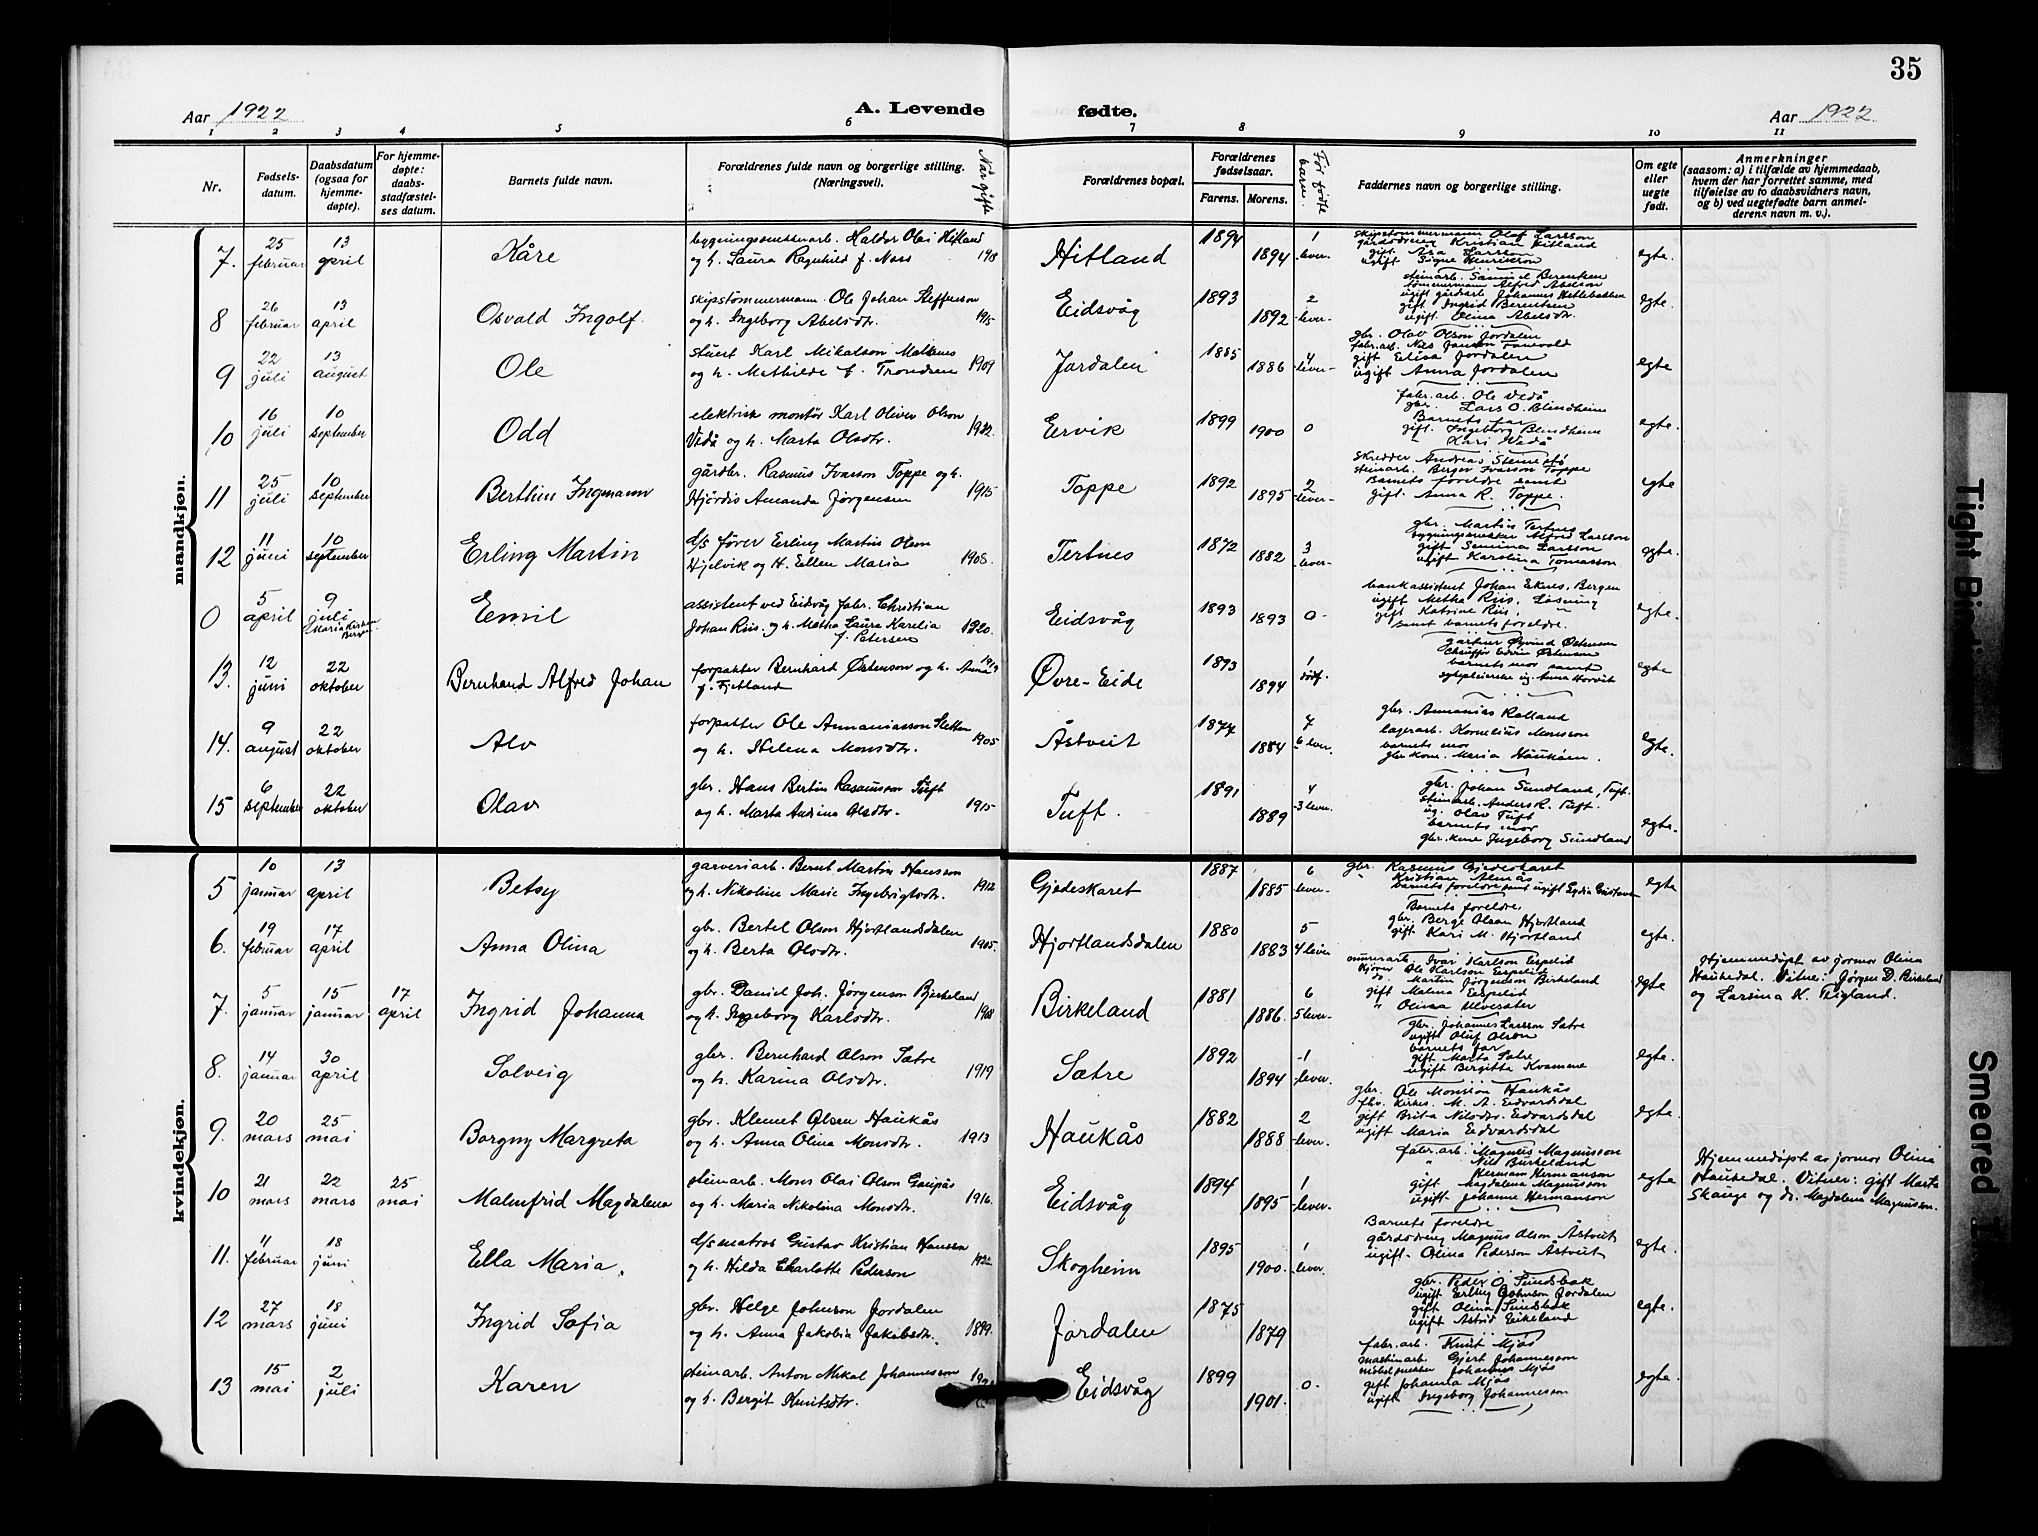 35
Aar 1922
A. Levende fødte.
Aar 1922
1 2 3 4 5 6 7 8 9 10 11
Nr.
Fødsels-
datum.
Daabsdatum
(ogsaa for
hjemme-
døpte).
For hjemme-
døpte:
daabs-
stadfæstel-
ses datum.
Barnets fulde navn.
Forældrenes fulde navn og borgerlige stilling.
(Næringsvei).
Når gifte
Forældrenes bopæl.
Forældrenes
fødselsaar.
Farens. Morens.
Før fødte
barn.
Faddernes navn og borgerlige stilling.
Om egte
eller
uegte
født.
Anmerkninger
(saasom: a) i tilfælde av hjemmedaab,
hvem der har forrettet samme, med
tilføielse av to daabsvidners navn,
og b) ved uegtefødte barn anmel-
derens navn m. v.).
mandkjøn.
7. 25 februar 13 april Kåre
bygningssnekkerarb. Haldor Olai Hitland
og h. Laura Ragnhild f. Ness
Hitland 1894 1894 1 lever.
skipstømmermann Olaf Larsson
gårdsdreng Kristian Hitland
egte.
8 26 februar 13 april Osvald Ingolf.
skipstømmermann. Ole Johan Steffenson
og h. Ingeborg Abelsdtr. 1915
Eidsvåg 1893 1892 2 lever
steinarb. Samuel Berentsen
tømmermann Alfred Abelson
gift Ingrid Berentsen
ugift. Olina Abelsdtr.
egte.
9 22 juli 13 august Ole
stuert Karl Mikalson Malkenes
og h. Mathilde f. Trondsen 1909
Jordalen 1885 1886 4 lever
gbr. Olav Olson Jordalen
gift Elisa Jordalen
ugift Anna Jordalen
egte
10 16 juli 10 september Odd
elektrisk montør Karl Oliver Olson
Vedå og h. Marta Olsdtr. 1922.
Ervik 1899 1900 0
fabr.arb. Ole Vedå
gbr. Lars O. Blindheim
Barnets far
gift. Ingeborg Blindheim
" Kari Vedå
egte.
11 25 juli 10 september Berthin Ingmann
gårdbr. Rasmus Ivarson Toppe og h.
Hjørdis Amanda Jørgensen 1915
Toppe 1892 1895 2 lever
skredder Andreas Steinestø
steinarb. Berger Ivarson Toppe
Barnets foreldre samt
gift. Anna R. Toppe.
egte
12 11 juni 10 september Erling Martin
d/s fører Erling Martin Olson
Hjelvik og H. Ellen Maria 1908.
Tertnes 1872 1882 3 lever
gbr. Martin Tertnes
bygningssnekker Alfred Larsson
gift Semina Larsson
ugift Karolina Tomasson
egte.
0 5 april 9 juli Mariakirken Bergen Emil
assistent ved Eidsvåg fabr. Christian
Johan Riis. og h. Metha Laura Karelia
f. Petersen 1920.
Eidsvåg 1893 1893 0
bankassistent Johan Eknes, Bergen
ugift Metha Riis, Løsning
gift Katrine Riis, "
samt barnets foreldre.
egte.
13. 12 juni 22 oktober Bernhard Alfred Johan
forpakter Bernhard Østenson og h. Anna
f. Fjetland
Øvre-Eide 1893 1894 1 dødf.
gartner Øyvind Østenson
barnets mor samt
egte
14. 9 august 22 oktober Alv
forpakter Ole Annaniasson Sletten
og h. Helena Monsdtr. 1905
Åstveit 1874 1884 7 6 lever.
gbr. Annanias Kalland
lagerarb. Kornelius Monsson
barnets mor
gbr kone. Maria Haukåen.
egte.
15 6 september 22 oktober Olav
gbr. Hans Bertin Rasmusson Tuft
og h. Marta Andrina Olsdtr. 1915
Tuft. 1891 1889 4 3 lever.
gbr. Johan Sundland, Tuft.
steinarb. Anders R. Tuft.
ug. Olav Tuft
barnets mor
gbr. kone Ingeborg Sundland
egte.
kvindekjøn.
5 10 januar 13 april Betsy
garveriarb. Bernt Martin Hansson
og h. Nikoline Marie Ingebrigtsdtr. 1912
Gjedeskaret 1887 1885 6 lever
gbr. Rasmus Gjedeskaret
" Kristian Almås
barnets foreldre samt ugift Lydia Gustavsen
egte
6. 19 februar 17 april Anna Olina
gbr. Bertel Olson Hjortlandsdalen
og h. Berta Olsdtr. 1905.
Hjortlandsdalen 1880 1883 5 4 lever
Barnets foreldre,
gbr. Berge Olson Hjortland
gift Kari M. Hjortland
egte.
7. 5 januar 15 januar 17 april Ingrid Johanna
gbr. Daniel Joh. Jørgenson Birkeland
og h. Ingeborg Karlsdtr. 1908
Birkeland 1881 1886. 6 5 lever.
murerarb. Ivar Karlson Espelid
Ole Karlson Espelid
Martin Jørgenson Birkeland
gift Malina Espelid
" Olina Ulvesæter
egte
Hjemmedøpt av jormor Olina
Haukedal. Vitner: Jørgen D. Birkeland
og Larsina K. Teigland.
8. 14 januar 30 april Solveig
gbr. Bernhard Olson Sætre
og h. Karina Olsdtr. 1919
Sætre 1892 1894 1 lever.
gbr. Johannes Larsson Sætre
ugift Oluf Olson
barnets far
gift Marta Sætre
ugift Birgitta Kvamme
egte.
9. 20 mars 25 mai Borgny Margreta
gbr. Klemet Olsen Haukås
og h. Anna Olina Monsdtr. 1913
Haukås 1882 1888 2 lever.
gbr. Ole Monsson Haukås
fhv. kirkes. M. A. Eidvardsdal
gift Brita Nilsdtr. Eidvardsdal
ugift Maria Eidvardsdal
egte.
10 21 mars 22 mars 25 mai Malmfrid Magdalena
steinarb. Mons Olai Olson Gaupås
og h. Maria Nikolina Monsdtr. 1916.
Eidsvåg 1894 1895 1 lever.
fabr.arb. Magnus Magnusson
" Nils Birkeland
" Hermann Hermanson
gift Magdalena Magnusson
ugift Johanne Hermanson
egte
Hjemmedøpt av jormor Olina
Haukedal. Vitner: gift Marta
Skauge og do. Magdalena Magnusson.
11. 11 februar 18 juni Ella Maria.
d/s matros Gustav Kristian Hansson
og h. Hilda Charlotte Pederson 1922
Skogheim 1895 1900. 1 lever.
Barnets foreldre
gårdsdreng Magnus Olson Åstveit
ugift. Olina Pederson Åstveit
egte.
12 27 mars 18 juni Ingrid Sofia
gbr. Helge Johnson Jordalen
og h. Anna Jakobia Jakobsdtr. 1899.
Jordalen 1875 1879
gbr. Peder O. Sundsbak
ugift Erling Johnson Jordalen
gift Olina Sundsbak
ugift Astrid Eikeland
egte.
13 15 mai 2 juli Karen
steinarb. Anton Mikal Johannesson
og h. Bergit Knutsdtr.
Eidsvåg 1899 1901. 0.
fabr.arb. Knut Mjøs
maskinarb. Gjert Johannesson
møbelsnekker Johannes Mjøs
gift Johanna Mjøs
ugift Ingeborg Johannesson
egte.
Tight Bindi
Smeared